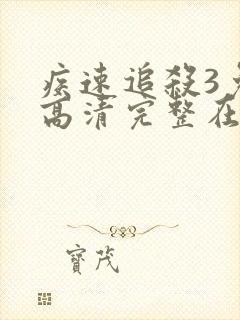 疾速追殺3
高清完整在
寶茂